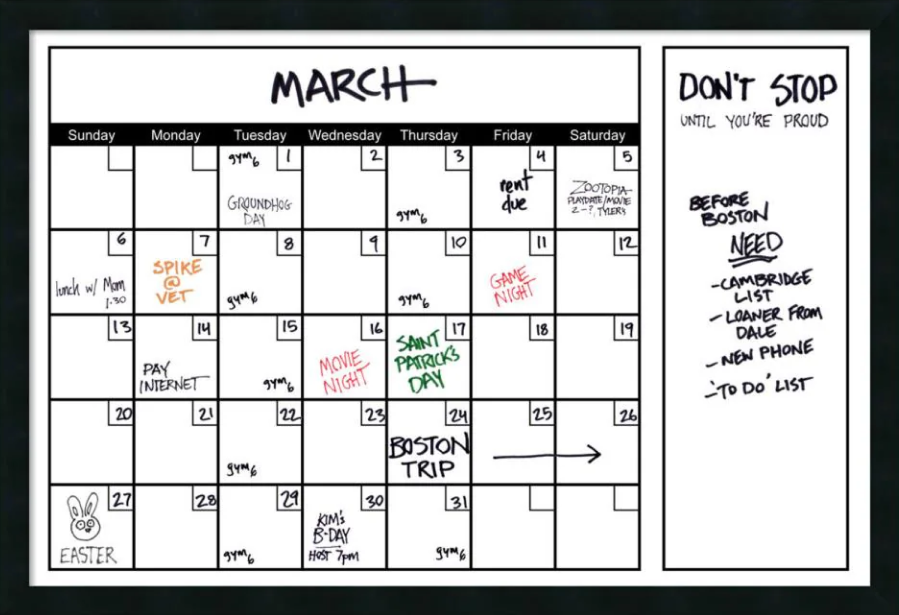 MARCH
Sunday Monday Tuesday Wednesday Thursday Friday Saturday
gym 6 1 2 3 4 5
GROUNDHOG
DAY
gym 6
rent
due
ZOOTOPIA
PLAYDATE/MOVIE
2-?, TYLER'S
6 7 8 9 10 11 12
lunch w/ Mom
1:30
SPIKE
@
VET
gym 6
gym 6
GAME
NIGHT
13 14 15 16 17 18 19
PAY
INTERNET
gym 6
MOVIE
NIGHT
SAINT
PATRICK'S
DAY
20 21 22 23 24 25 26
gym 6
BOSTON
TRIP
27 28 29 30 31
EASTER
gym 6
KIM'S
B-DAY
HOST 7pm
gym 6
DON'T STOP
UNTIL YOU'RE PROUD
BEFORE
BOSTON
NEED
-CAMBRIDGE
LIST
-LOANER FROM
DALE
-NEW PHONE
-'TO DO' LIST